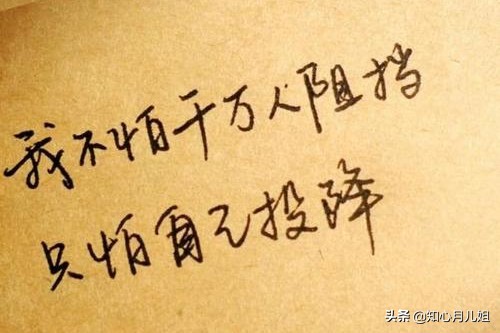 我不怕千万人阻挡
只怕自己投降
头条 @知心月儿姐